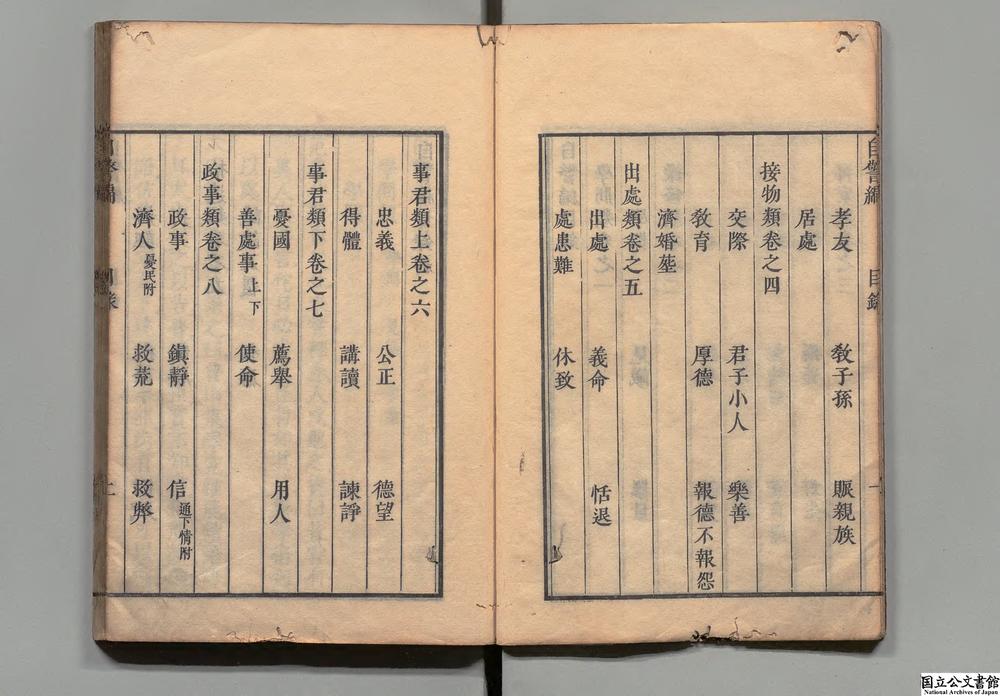 自警編 目錄 一
孝友 敎子孫 賑親族
居處
接物類卷之四
交際 君子小人 樂善
敎育 厚德 報德不報怨
濟婚塟
出處類卷之五
出處 義命 恬退
處患難 休致
事君類上卷之六
忠義 公正 德望
得體 講讀 諫諍
事君類下卷之七
憂國 薦舉 用人
善處事上下 使命
政事類卷之八
政事 鎭靜 信通下情附
濟人憂民附 救荒 救弊
国立公文書館
National Archives of Japan